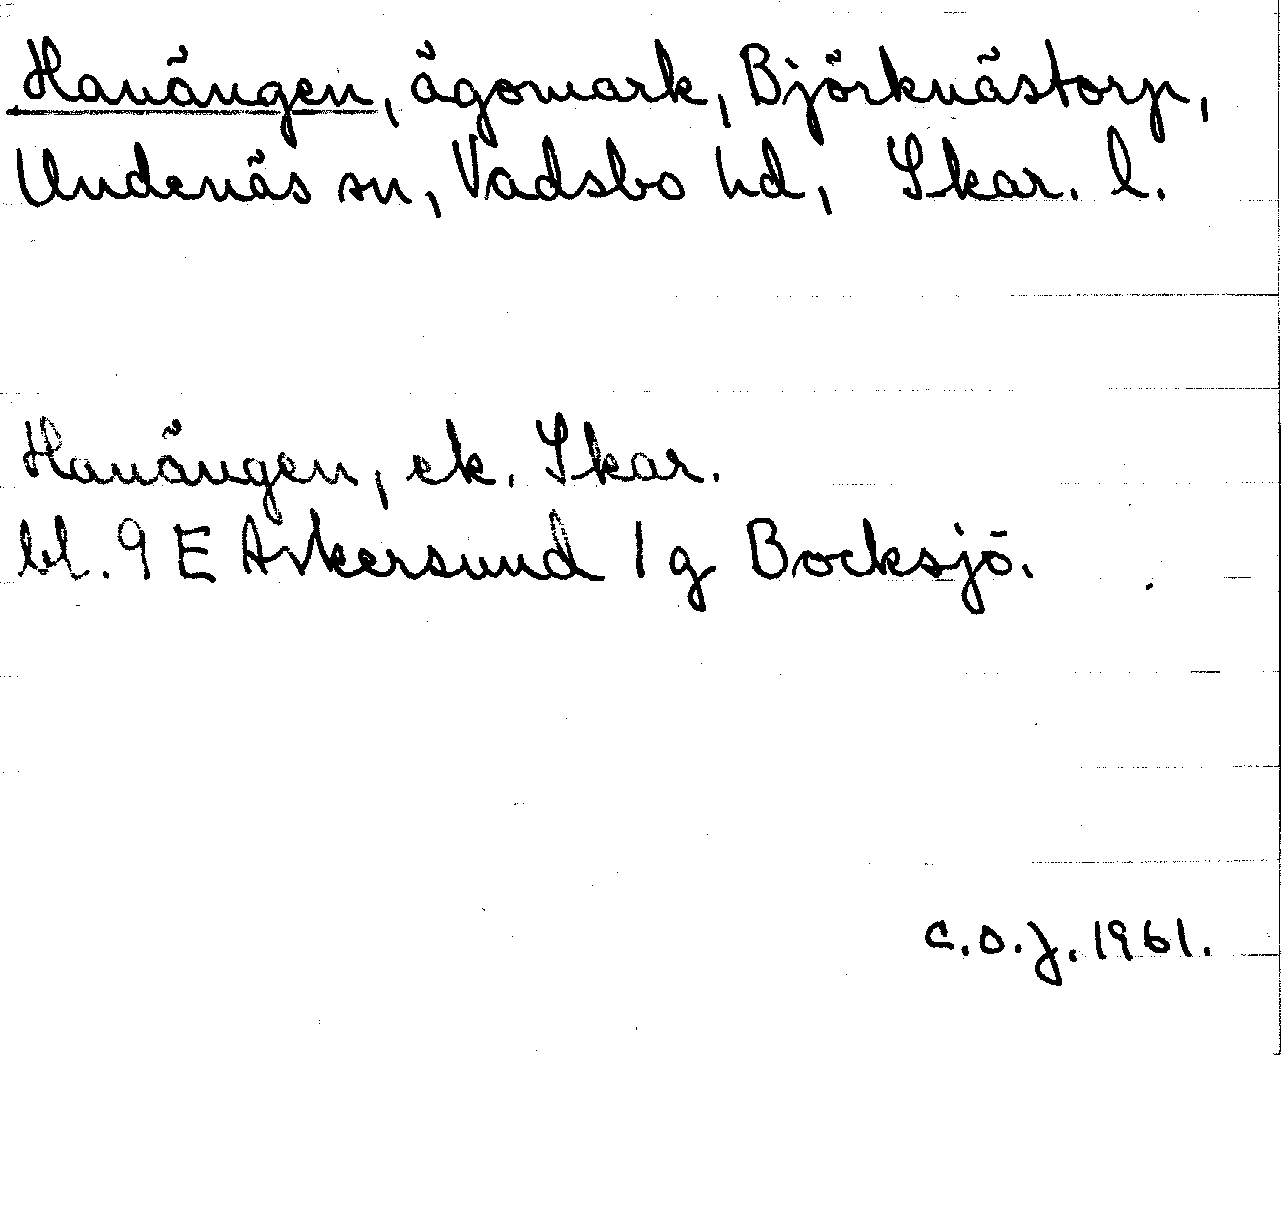 Hanängen, ägomark, Björknästorp,
Undenäs sn, Vadsbo hd, Skar. l.
Hanängen, ek. Skar.
bl. 9 E Askersund 1 g Bocksjö.
C.O.J. 1961.